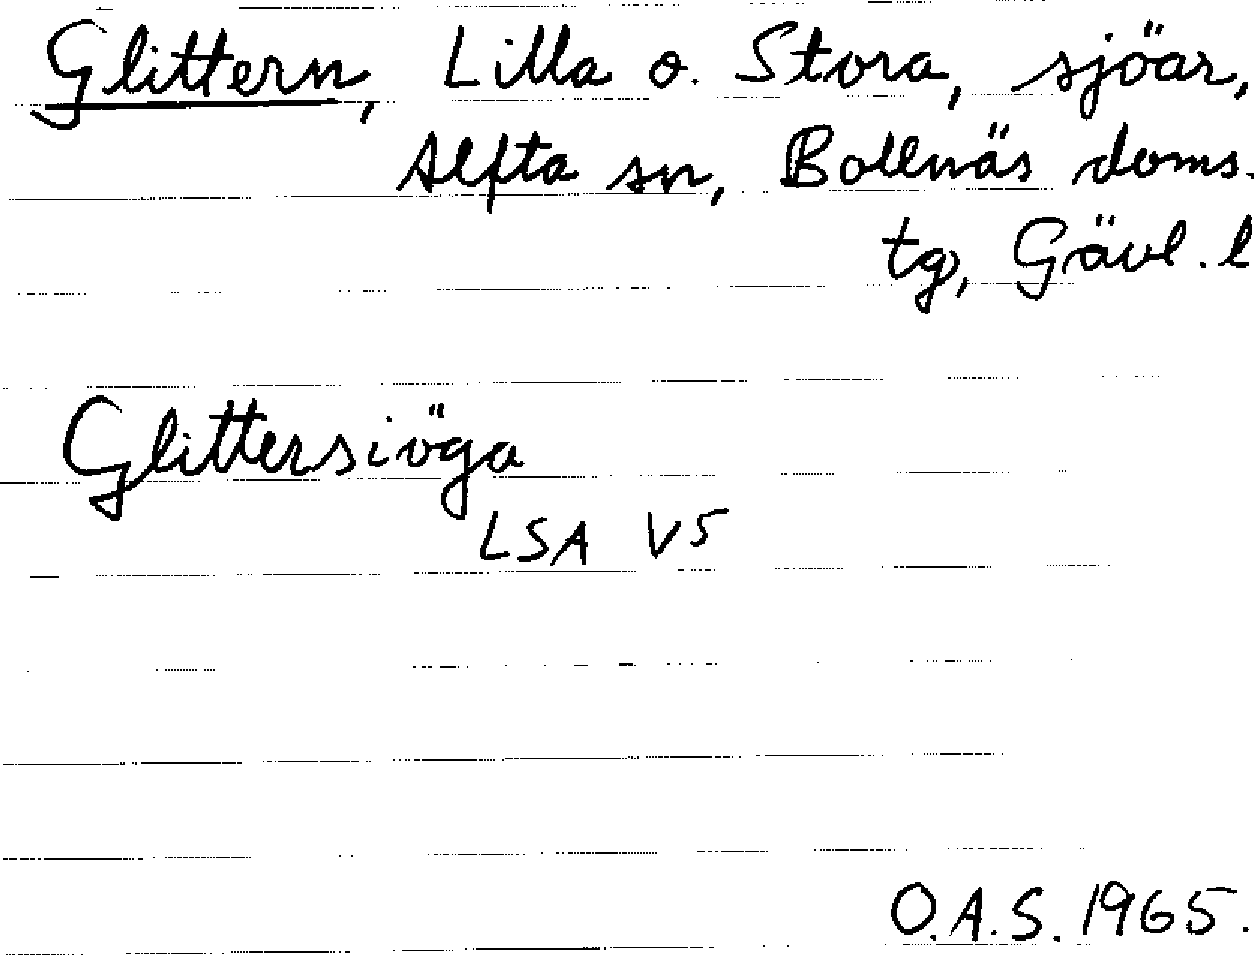 Glittern, Lilla o. Stora, sjöar,
Alfta sn, Bollnäs doms.
tg, Gävl. l
Glittersiöga
LSA V5
O.A.S. 1965.